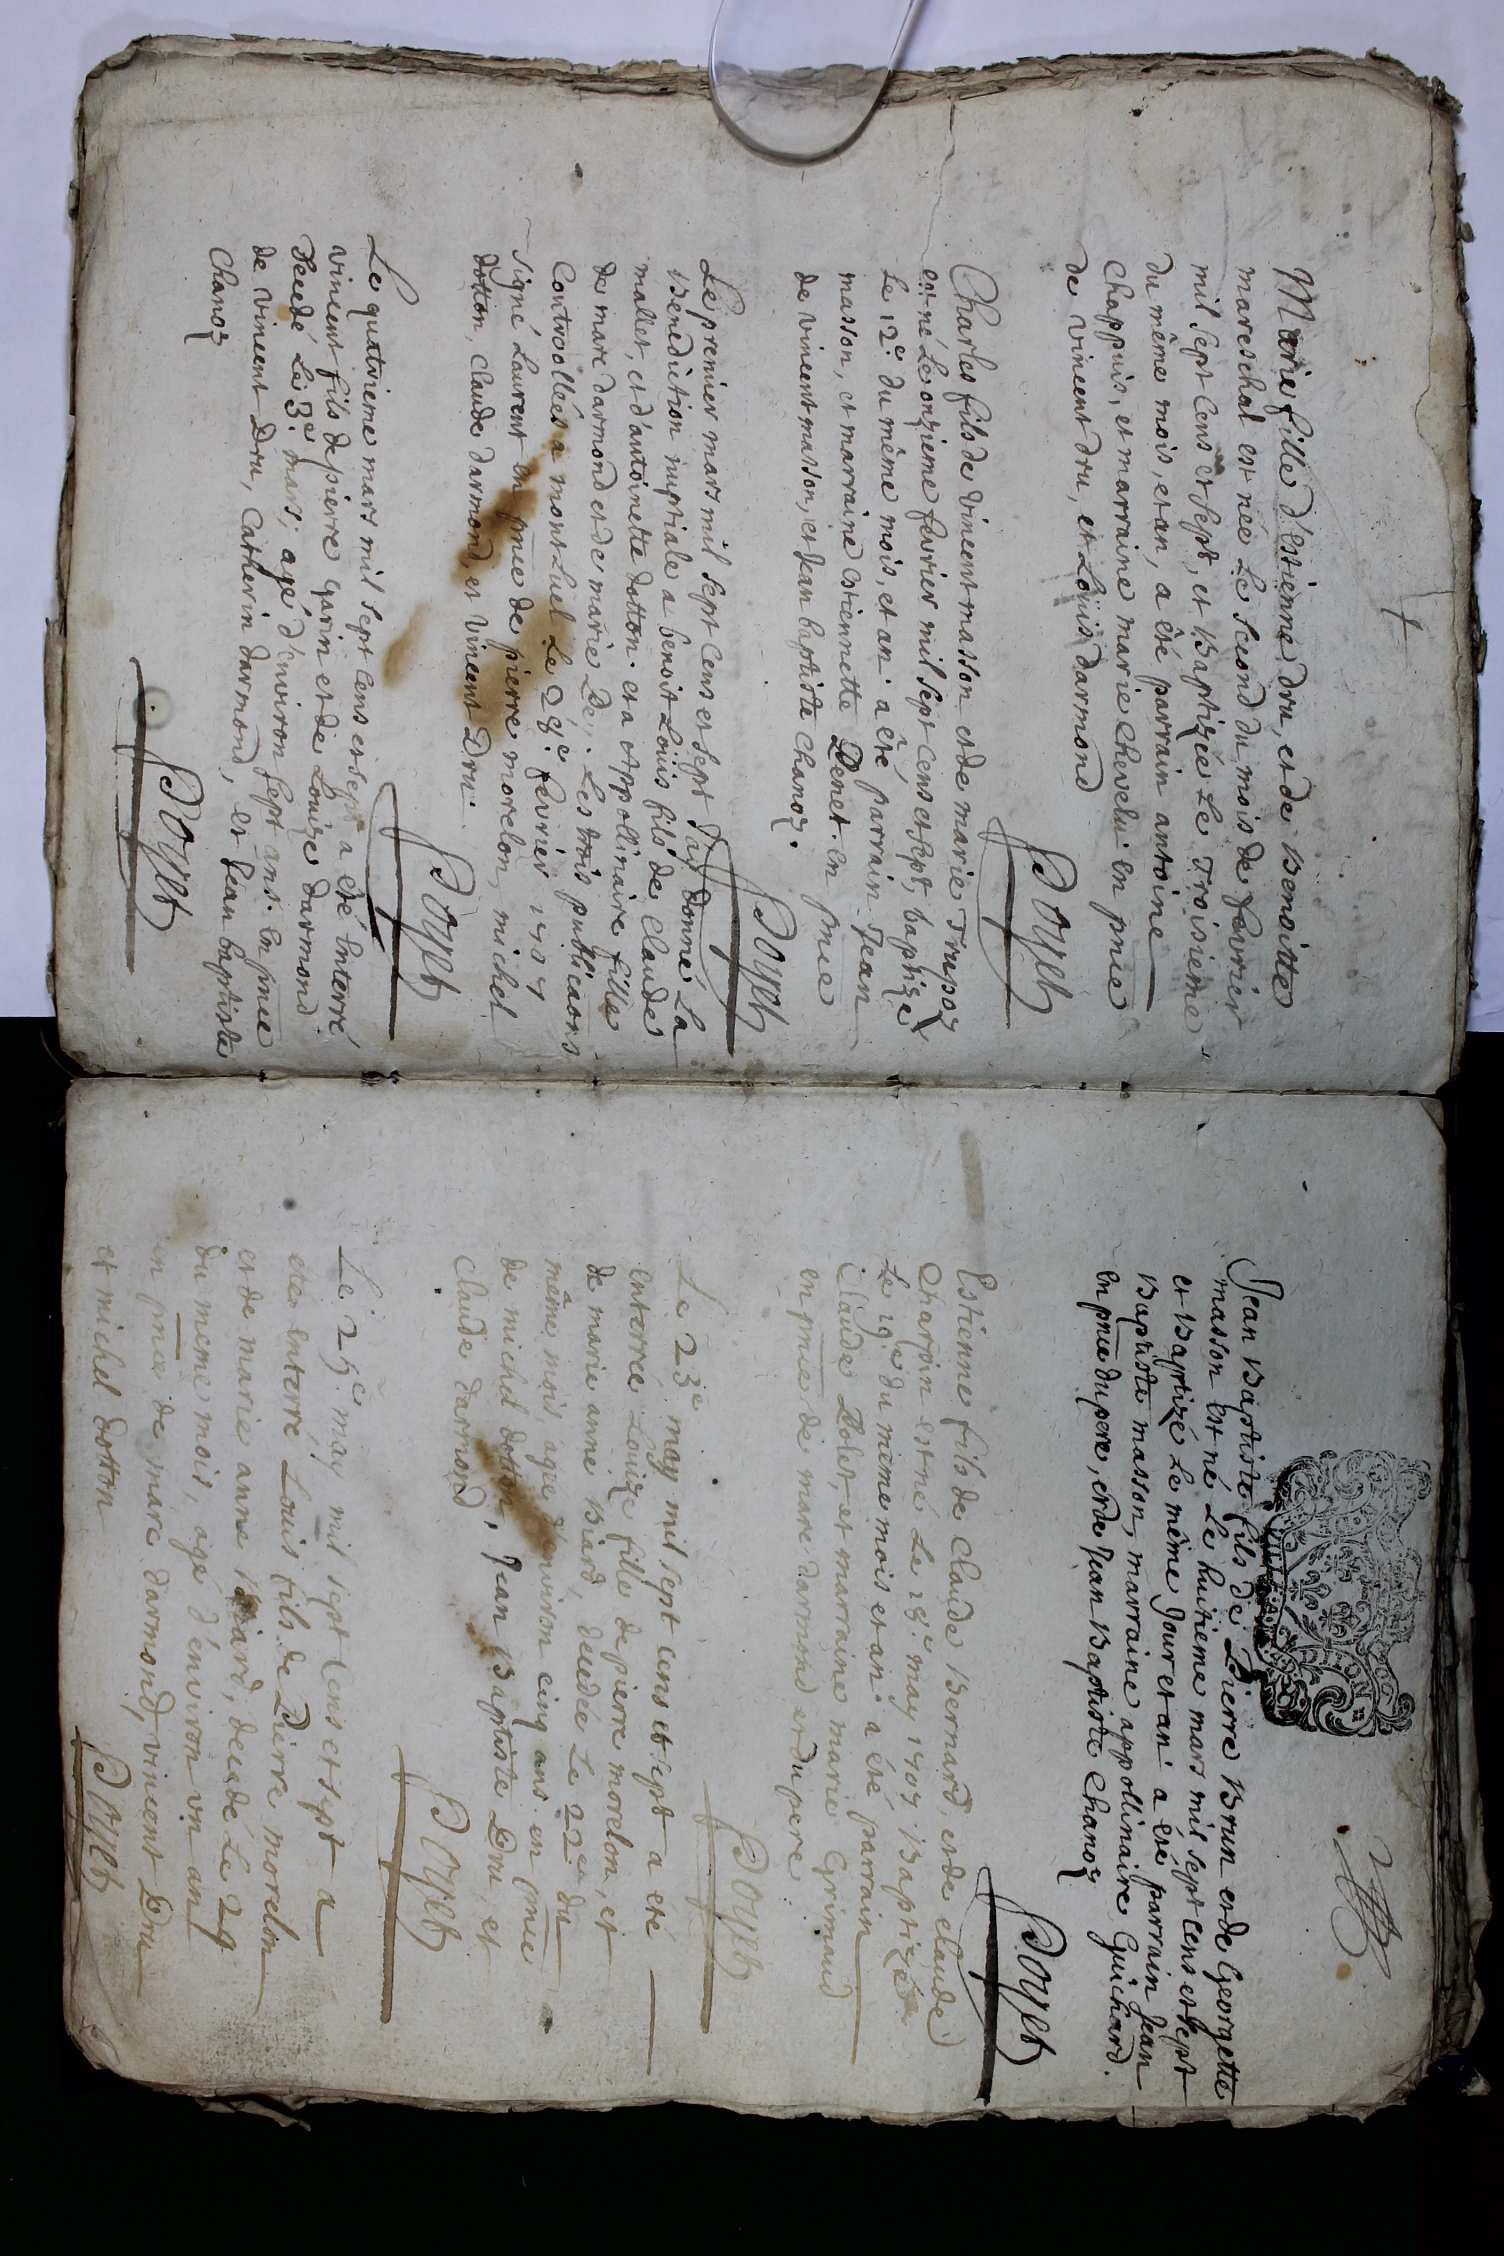 Marie fille d'Estienne dru, et de Benoitte
mareschal est née Le second du mois de fevrier
mil sept cens et sept, et Baptizée Le Troisieme
du même mois, et an, a êté parrain antoine
Chappuis, et marraine marie Chevelu en pnce
de vincent dru, et Loüis darmond
Doyet
Charles fils de vincent masson et de marie Trupoz
est né Le onzieme fevrier mil sept cens et sept, baptizé
Le 12e. du même mois, et an. a êté parrain Jean
masson, et marraine estiennette Demet. en pnce
de vincent masson, et Jean baptiste Chanoz.
Doyet
Le premier mars mil sept cens et sept J'ay donné La
Benediction nuptiale a benoit Loüis fils de Claude
mallet, et d'antoinette dotton. et a Appollinaire fille
de marc darmond et de marie De. Les trois publicaons
Controollées a montluel Le 28e. fevrier 1707
signé Laurent en pnce de pierre morelon, michel
dotton, Claude darmond, et vincent Dru.
Doyet
Le quatrieme mars mil sept cens et sept a eté Enterré
vincent fils de pierre garin et de Louize darmond
decedé Le 3e. mars, agé d'environ sept ans. en pnce
de vincent Dru, Catherin darmond, et Jean baptiste
Chanoz
Doyet
Jean Baptiste fils de Pierre Brun et de Georgette
masson est né Le huitieme mars mil sept cens et sept
et Baptizé Le même Jour et an. a eté parrain Jean
Baptiste masson, marraine appollinaire Guichard.
en pnce du pere, et de Jean Baptiste Chanoz
Doyet
Estienne fils de Claude Bernard, et de claude
Charpin est né Le 18e. may 1707 Baptizé
Le 19e du même mois et an. a eté parrain
Claude Polet, et marraine marie Grimaud
en pnce de marc darmond et du pere.
Doyet
Le 23e may mil sept cens et sept a eté
enterrée Louize fille de pierre morelon, et
de marie anne Biard decedée Le 22e du
même mois, agée d'environ cinq ans. en pnce
de michel dotton, Jean Baptiste Dru, et
Claude darmond
Doyet
Le 25e may mil sept cens et sept a
eté enterré Louis fils de Pierre morelon
et de marie anne Biard, decedé Le 24
du meme mois, agé d'environ un an
en pnce de marc darmond, vincent Dru
et michel dotton
Doyet